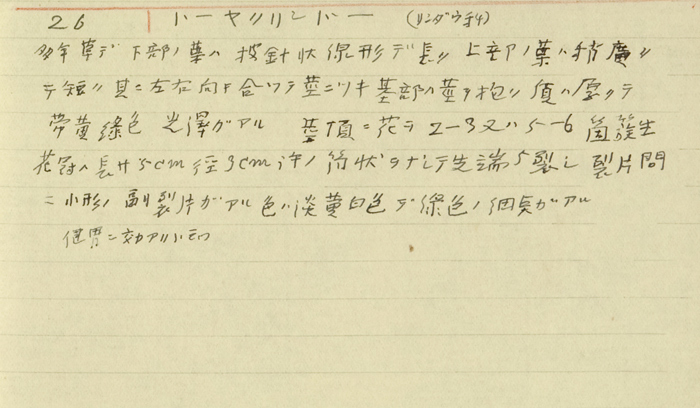 26 トーヤクリンドー (リンダウ科)
多年草デ下部ノ葉ハ披針狀線形デ長ク上部ノ葉ハ稍廣ク
テ短ク 其ニ左右向ヒ合ツテ莖ニツキ基部ハ莖ヲ抱ク 質ハ厚クテ
帶黃綠色 光澤ガアル 莖頂ニ花ヲ2-3又ハ5-6箇發生
花冠ハ長サ5cm徑3cm許ノ筒狀ヲナシテ先端5裂シ 裂片間
ニ小形ノ副裂片ガアル 色ハ淡黃白色デ綠色ノ細點ガアル
健胃ニ効アリ